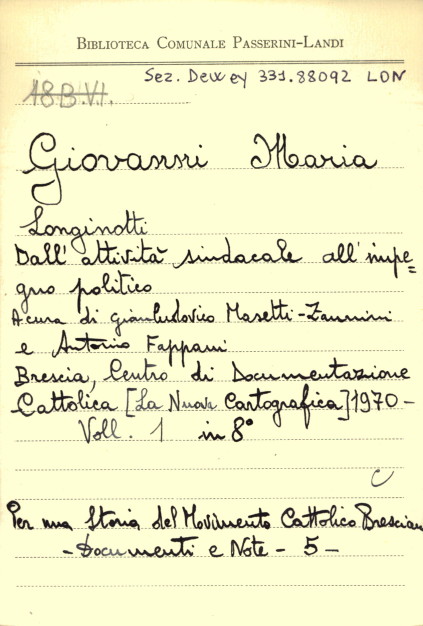 BIBLIOTECA COMUNALE PASSERINI-LANDI
Sez. Dewey 331.88092 LON
18.B.VI.
Giovanni Maria
Longinotti
Dall'attività sindacale all'impe=
gno politico
A cura di Gianludovico Masetti-Zannini
e Antonio Fappani
Brescia, Centro di Documentazione
Cattolica [La Nuova Cartografica] 1970 -
Voll. 1 in 8°
C
Per una Storia del Movimento Cattolico Bresciano
- Documenti e Note - 5 -